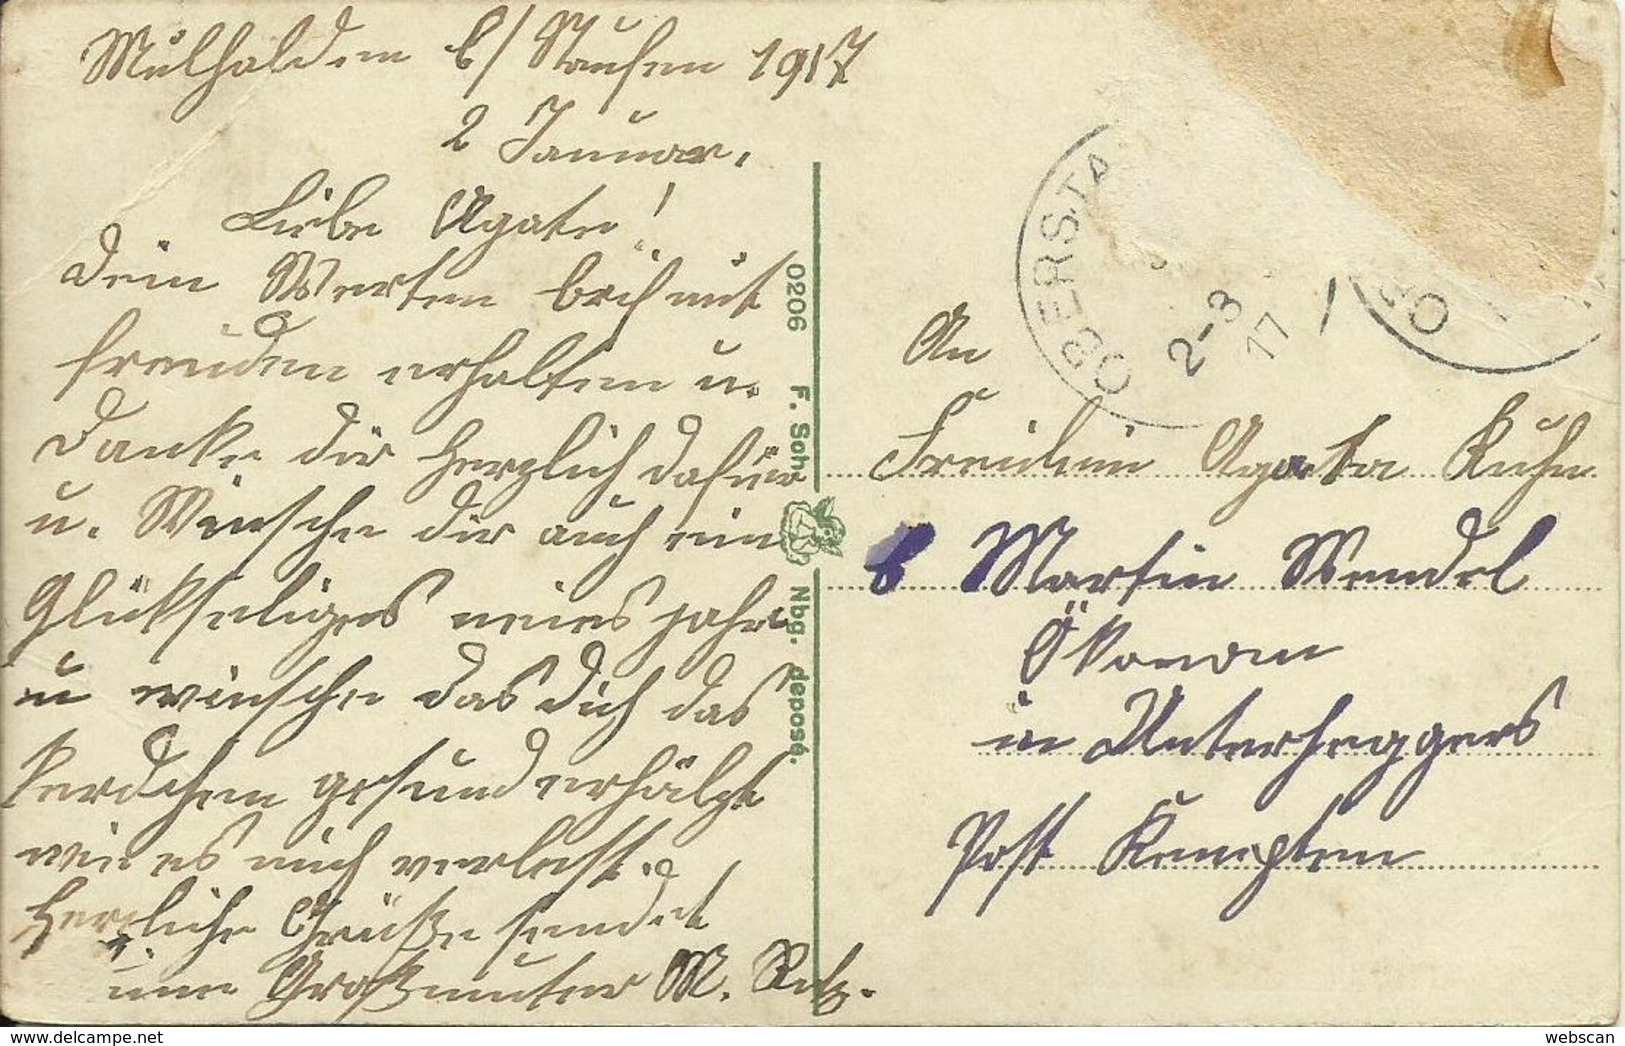 Mülhalden b/ Staufen 1917
2 Januar.
Liebe Agate!
Dein Werten brif mit
freuden erhalten u.
Danke dir Herzlich dafür
u. Wünsche dir auch ein
Glükseliges neues jahr
u wünsche das dich das
kerdchen gesund erhält
wie es mich verlast.
Herzliche Grüße sendet
u.
Großmutter M.
0206 F. Sch Nbg. deposé.
OBERSTA
2-3
17
An
Freulein Agata Kuhn
b Martin Wendel
Ökonom
in Unterheggers
Post Kempten
webscan